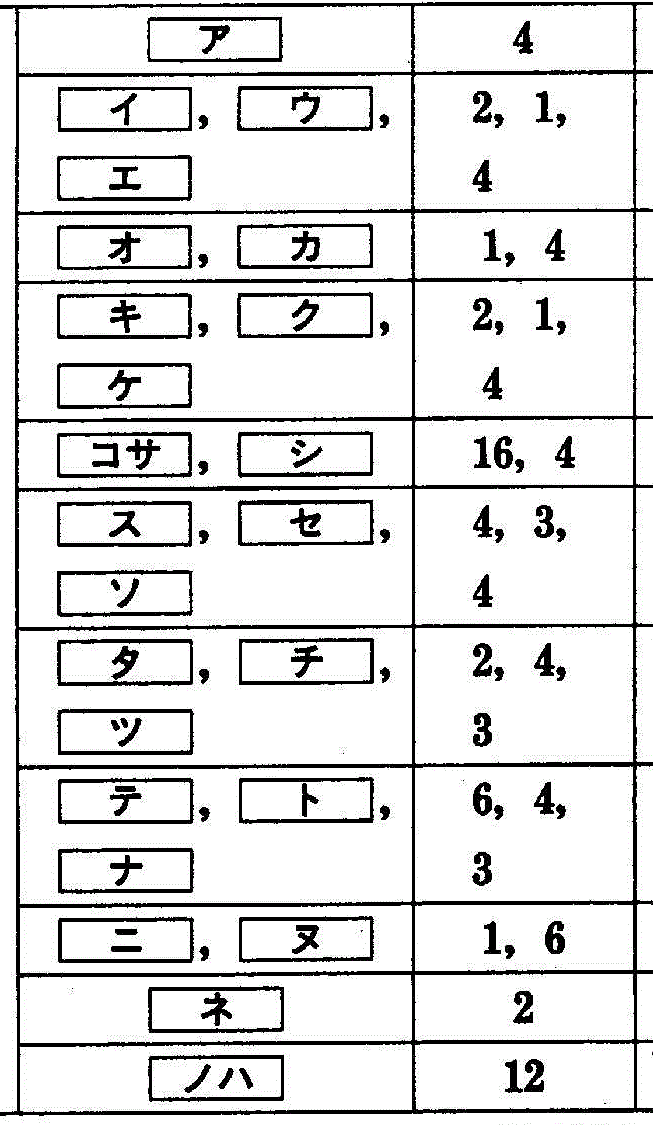 ア 4
イ, ウ, 2, 1,
エ 4
オ, カ 1, 4
キ, ク, 2, 1,
ケ 4
コサ, シ 16, 4
ス, セ, 4, 3,
ソ 4
タ, チ, 2, 4,
ツ 3
テ, ト, 6, 4,
ナ 3
ニ, ヌ 1, 6
ネ 2
ノハ 12